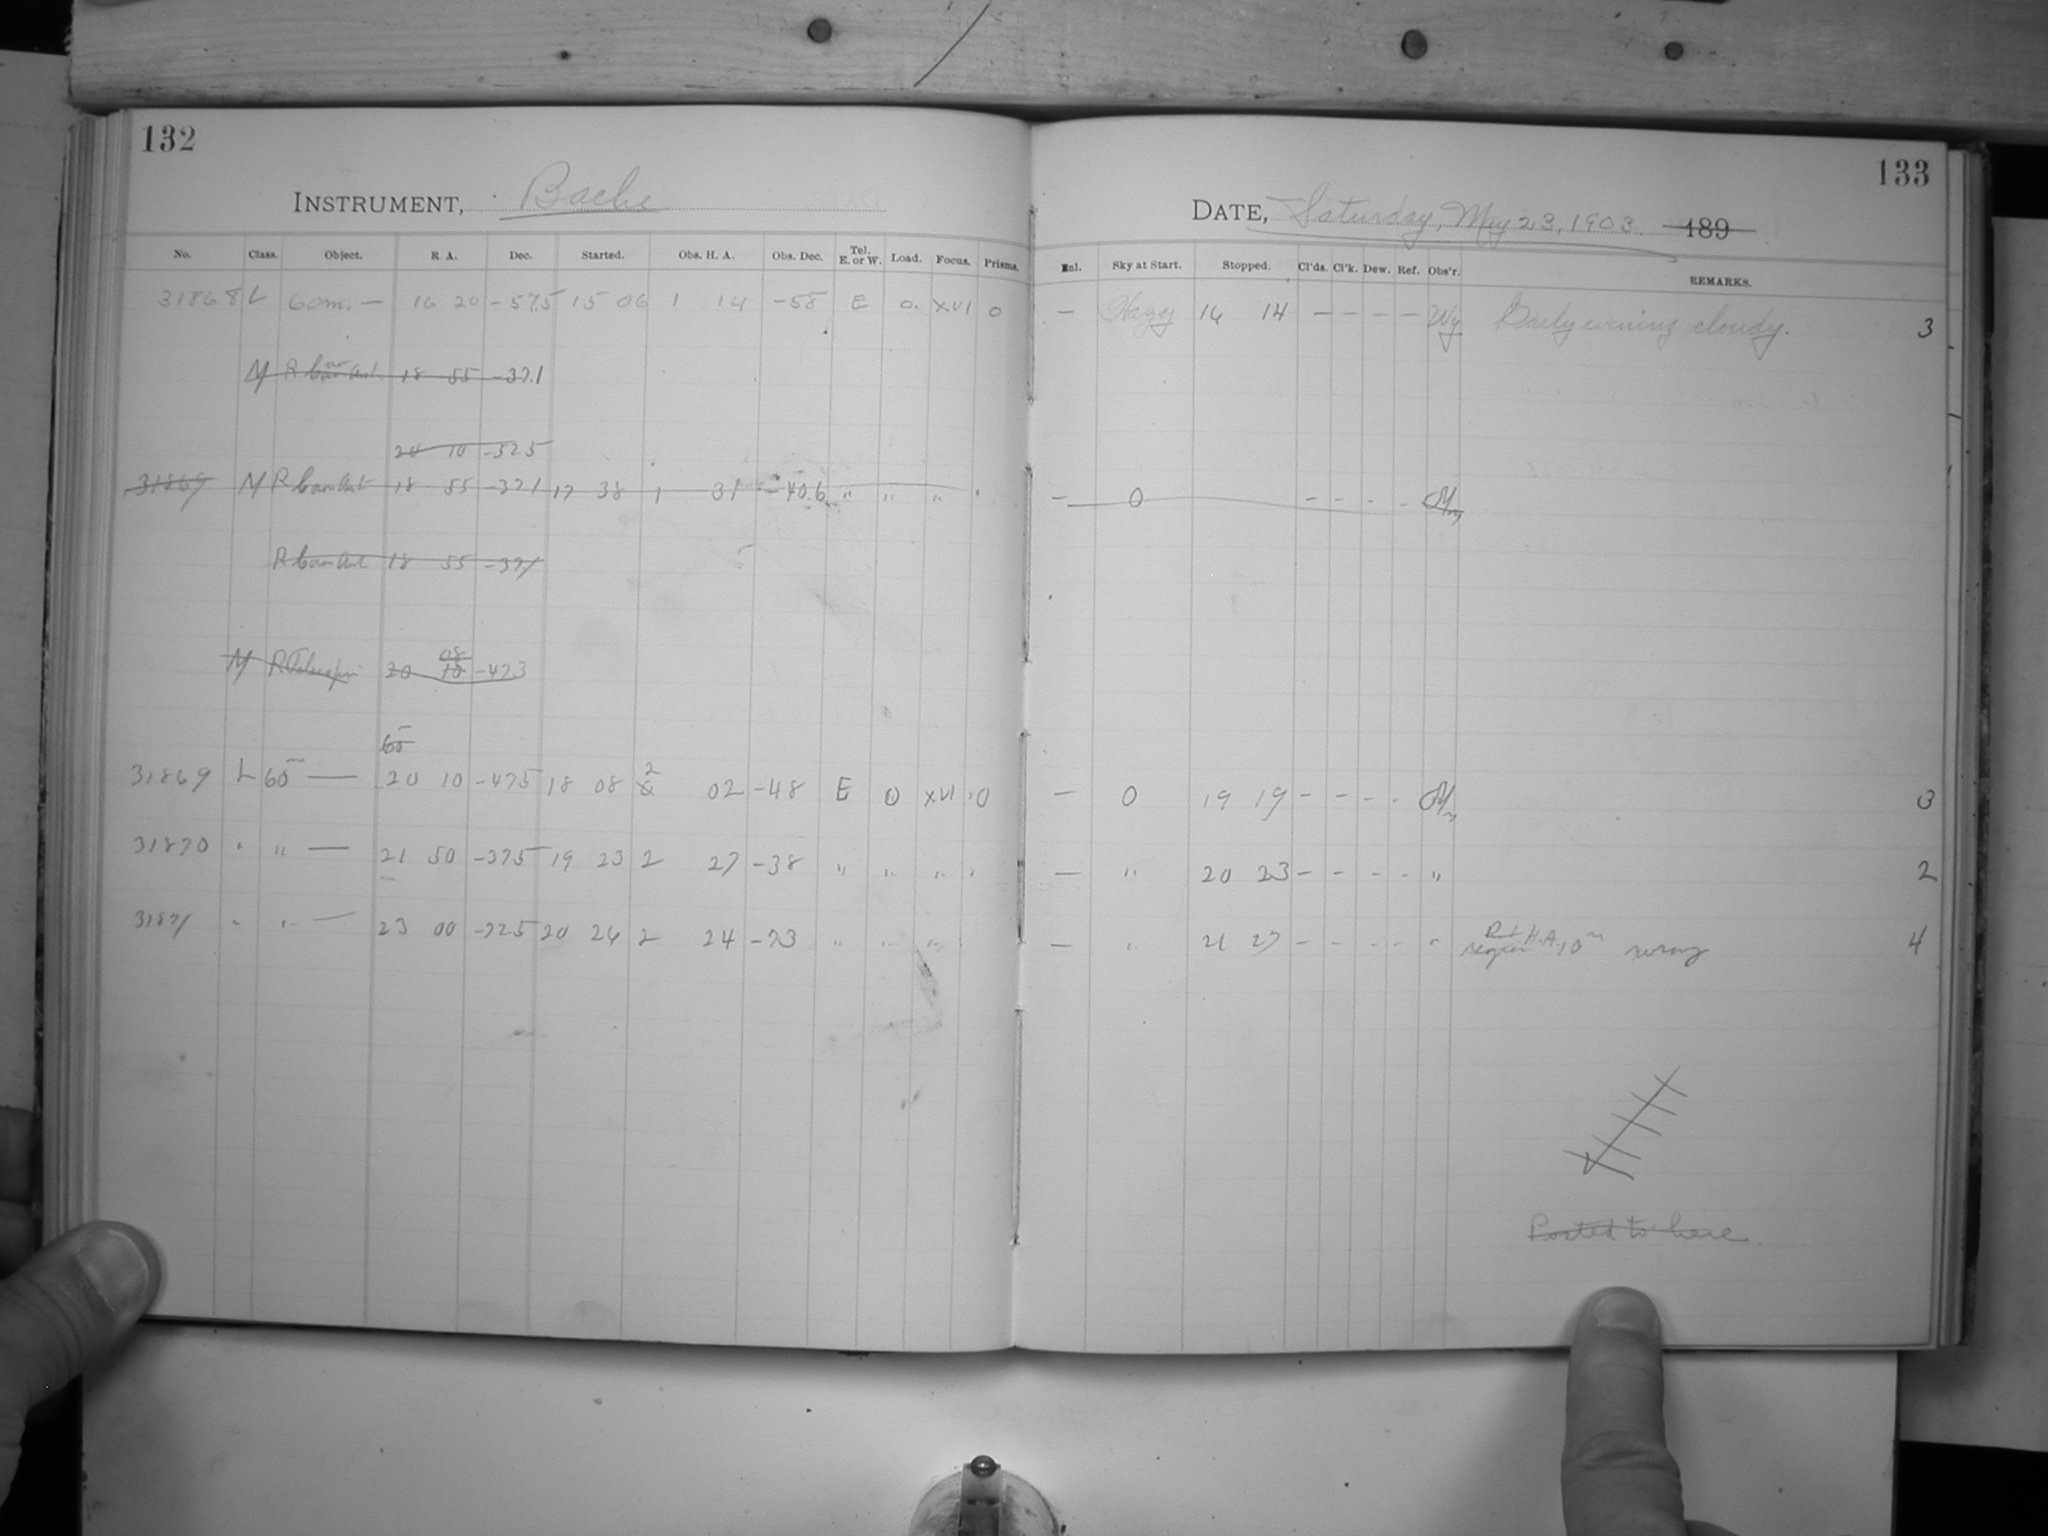 132
INSTRUMENT, Bache
No. Class. Object. R A. Dec. Started. Obs. H. A. Obs. Dec. Tel. E. or W. Load. Focus. Prisms.
31868 L 60m. — 16 20 -57.5 15 06 1 14 -58 E 0. XVI 0
M R Cor Aust 18 55 -37.1
20 10 -32.5
31869 M R Cor Aust 18 55 -37.1 17 38 1 31 -40.6 " " " "
R Cor Aust 18 55 -37.1
M R Telescopii 20 10 08 -47.3
60m
31869 L 60m — 20 10 -47.5 18 08 2 02 -48 E 0 XVI 0
31870 " " — 21 50 -37.5 19 23 2 27 -38 " " " "
31871 " " — 23 00 -72.5 20 24 2 24 -73 " " " "
133
DATE, Saturday, May 23, 1903. 189
Inl. Sky at Start. Stopped. Cl'ds. Cl'k. Dew. Ref. Obs'r. REMARKS.
— Hazy 16 14 — — — — Wy Early evening cloudy. 3
— 0 - - - -
— 0 19 19 - - - - 3
— " 20 23 - - - - " 2
— " 21 27 - - - - " region H.A. 10m wrong 4
Posted to here.